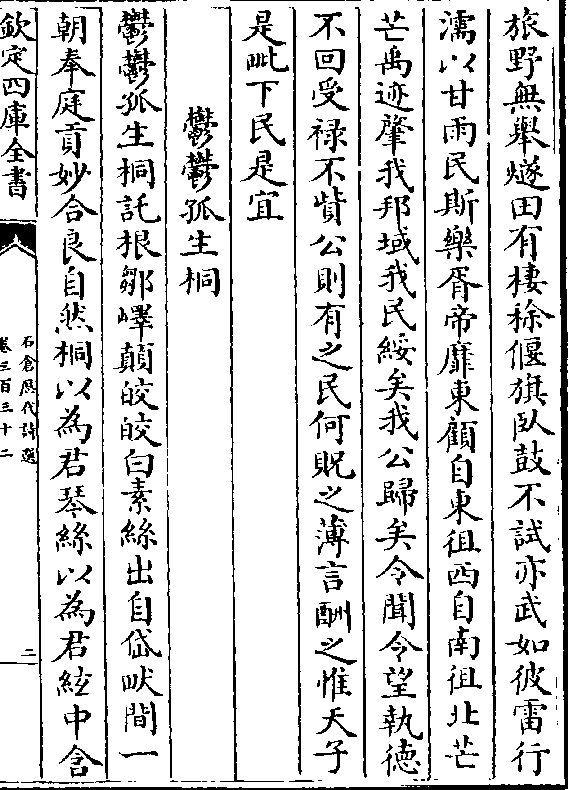 旅野無舉燧田有棲稌偃旗臥鼓不試亦武如彼雷行
濡以甘雨民斯樂胥帝靡東顧自東徂西自南徂北芒
芒禹迹肇我邦域我民綏矣我公歸矣令聞令望執德
不回受祿不貲公則有之民何貺之薄言酬之惟天子
是毗下民是宜
鬱鬱孤生桐
鬱鬱孤生桐託根鄒嶧顛皎皎白素絲出自岱畎間一
朝奉庭貢妙合良自然桐以為君琴絲以為君絃中含
欽定四庫全書
石倉歷代詩選
卷三百三十二
二